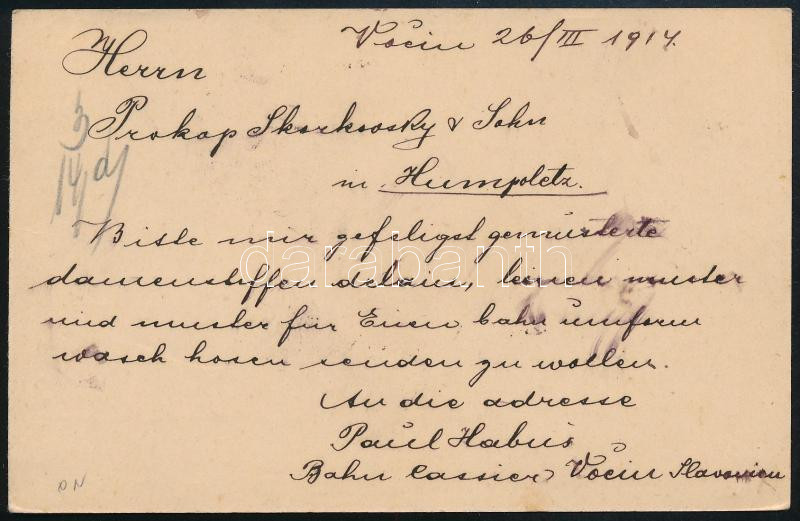 Vočin 26/III 1914.
Herrn
Prokop Skorkovsky & Sohn
in Humpoletz.
Bitte mir gefeligst gemusterte
damenstoffen delain, leinen muster
und muster für Eisen bahn uniform
wasch hosen senden zu wollen.
An die adresse
Paul Habus
Bahn Cassier Vočin Slavonien
darabanth
ON